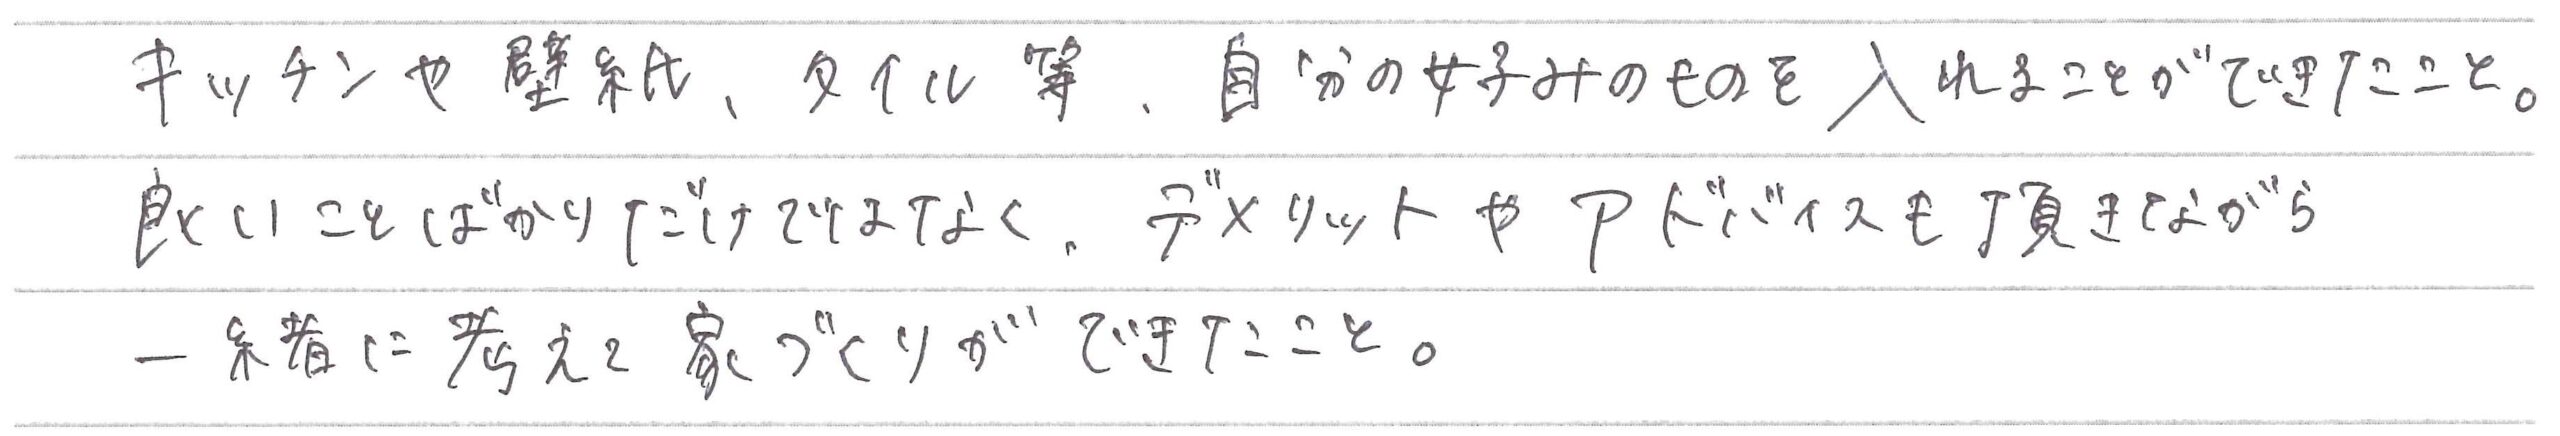 キッチンや壁紙、タイル等、自分の好みのものを入れることができたこと。
良いことばかりだけではなく、デメリットやアドバイスも頂きながら
一緒に考えて家づくりができたこと。